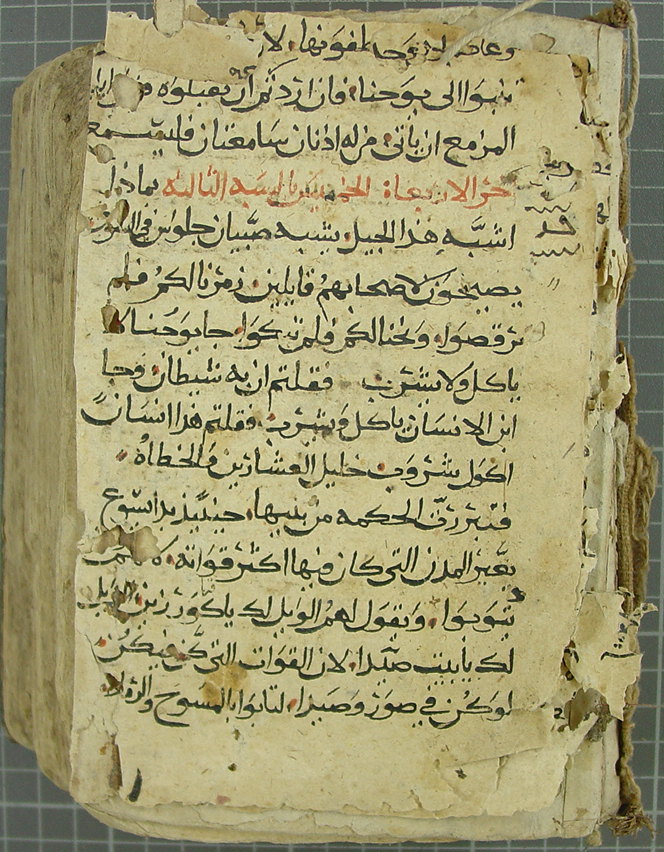 تنبوا الى يوحنا. فان اردتم ان تقبلوه
المزمع ان ياتى. من له اذنان سامعتان فليسمع
الاربعا: الخميس السبه التالته بماذا
اشبه هذا الجيل. يشبه صبيان جلوس فى
يصيحون لاصحابهم قايلين. زمرنا لكم فلم
ترقصوا. ونحنا لكم فلم تبكوا. جا يوحنا لا
ياكل ولا يشرب فقلتم ان به شيطان. وجا
ابن الانسان ياكل ويشرب. فقلتم هذا انسان
اكول شروب خليل العشارين والخطاه
فتبررت الحكمه من بنيها. حينيذ بدا يسوع
يعير المدن التى كان فيها اكثر قواته.
يتوبوا. ويقول لهم الويل لك ياكورزين الويل
لك يابيت صيدا. لان القوات التى كن فيكن
لو كن في صور وصيدا. لتابوا بالمسوح والرماد